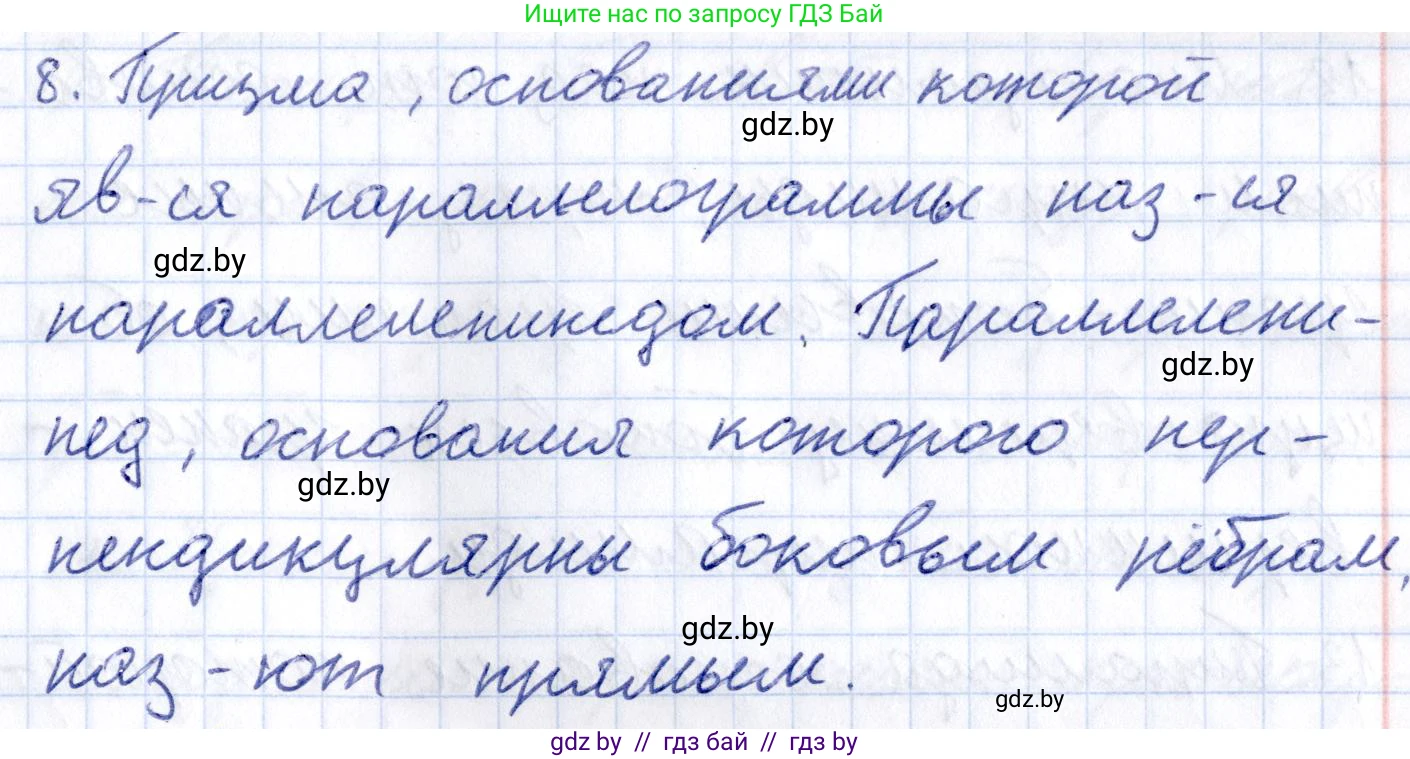 Ищите нас по запросу ГДЗ Бай
8. Призма, основаниями которой
gdz.by
яв-ся параллелограммы наз-ся
gdz.by
параллелепипедом. Параллелепи-
gdz.by
пед, основания которого пер-
gdz.by
пендикулярны боковым рёбрам,
gdz.by
наз-ют прямым.
gdz.by
gdz by // гдз бай // гдз by